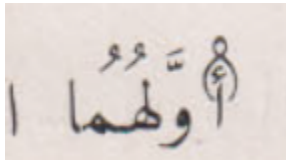 أوَّلُهُما ا